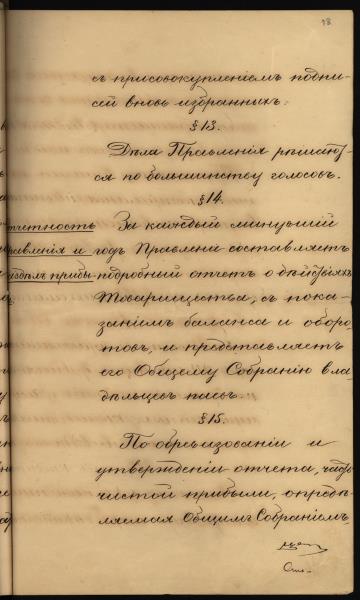 18
съ присовокупленіемъ подпи-
сей вновь избранныхъ.
§ 13.
Дѣла Правленія рѣшают-
ся по большинству голосовъ.
§ 14.
тчетность За каждый минувшій
равленія и годъ Правленіе составляетъ
здѣлъ прибы- подробный отчетъ о дѣйствіяхъ
Товарищества, съ пока-
заніемъ баланса и оборо-
товъ, и представляетъ
его Общему Собранію вла-
дѣльцевъ паевъ.
§ 15.
По обревизованіи и
утвержденіи отчета, часть
чистой прибыли, опредѣ-
ляемая Общимъ Собраніемъ,